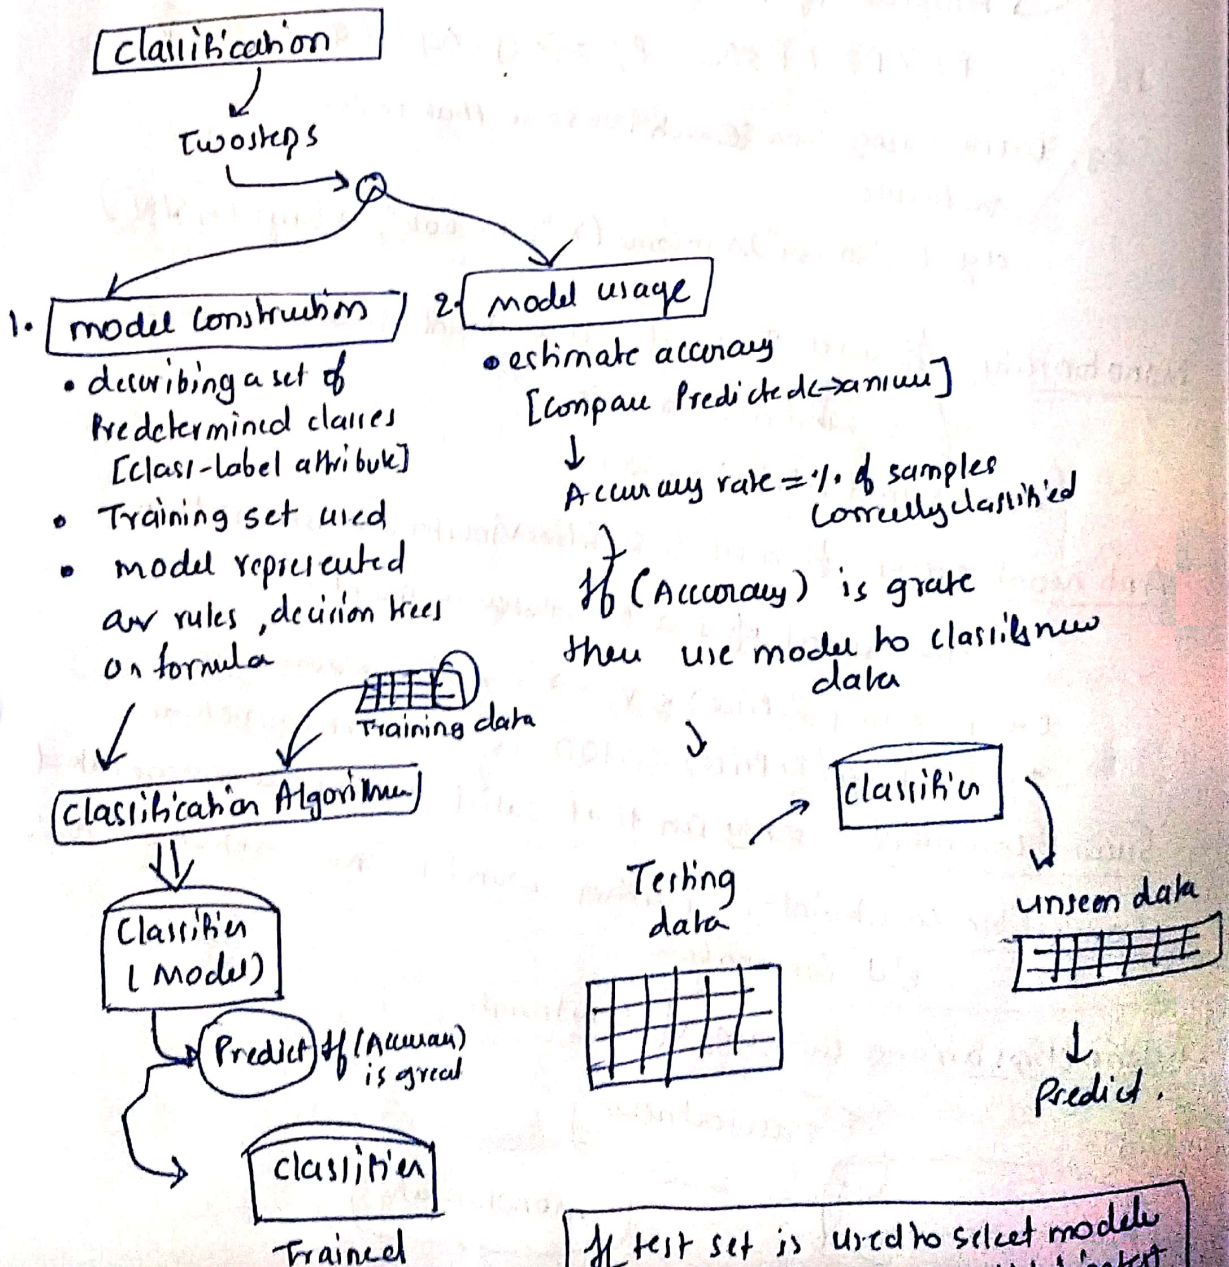 Classification
Two steps
1. Model Construction
• describing a set of
Predetermined classes
[class-Label attribute]
• Training set used
• model represented
as rules, decision trees
or formula
Training data
Classification Algorithm
Classifier
(Model)
Predict If (Accuracy)
is great
Classifier
Trained
2. Model usage
• estimate accuracy
[Compare Predicted
↓
Accuracy rate = % of samples
Correctly classified
If (Acccuracy) is grate
then use model to classify new
data
Classifier
Testing
data
unseen data
↓
Predict.
If test set is used to select models